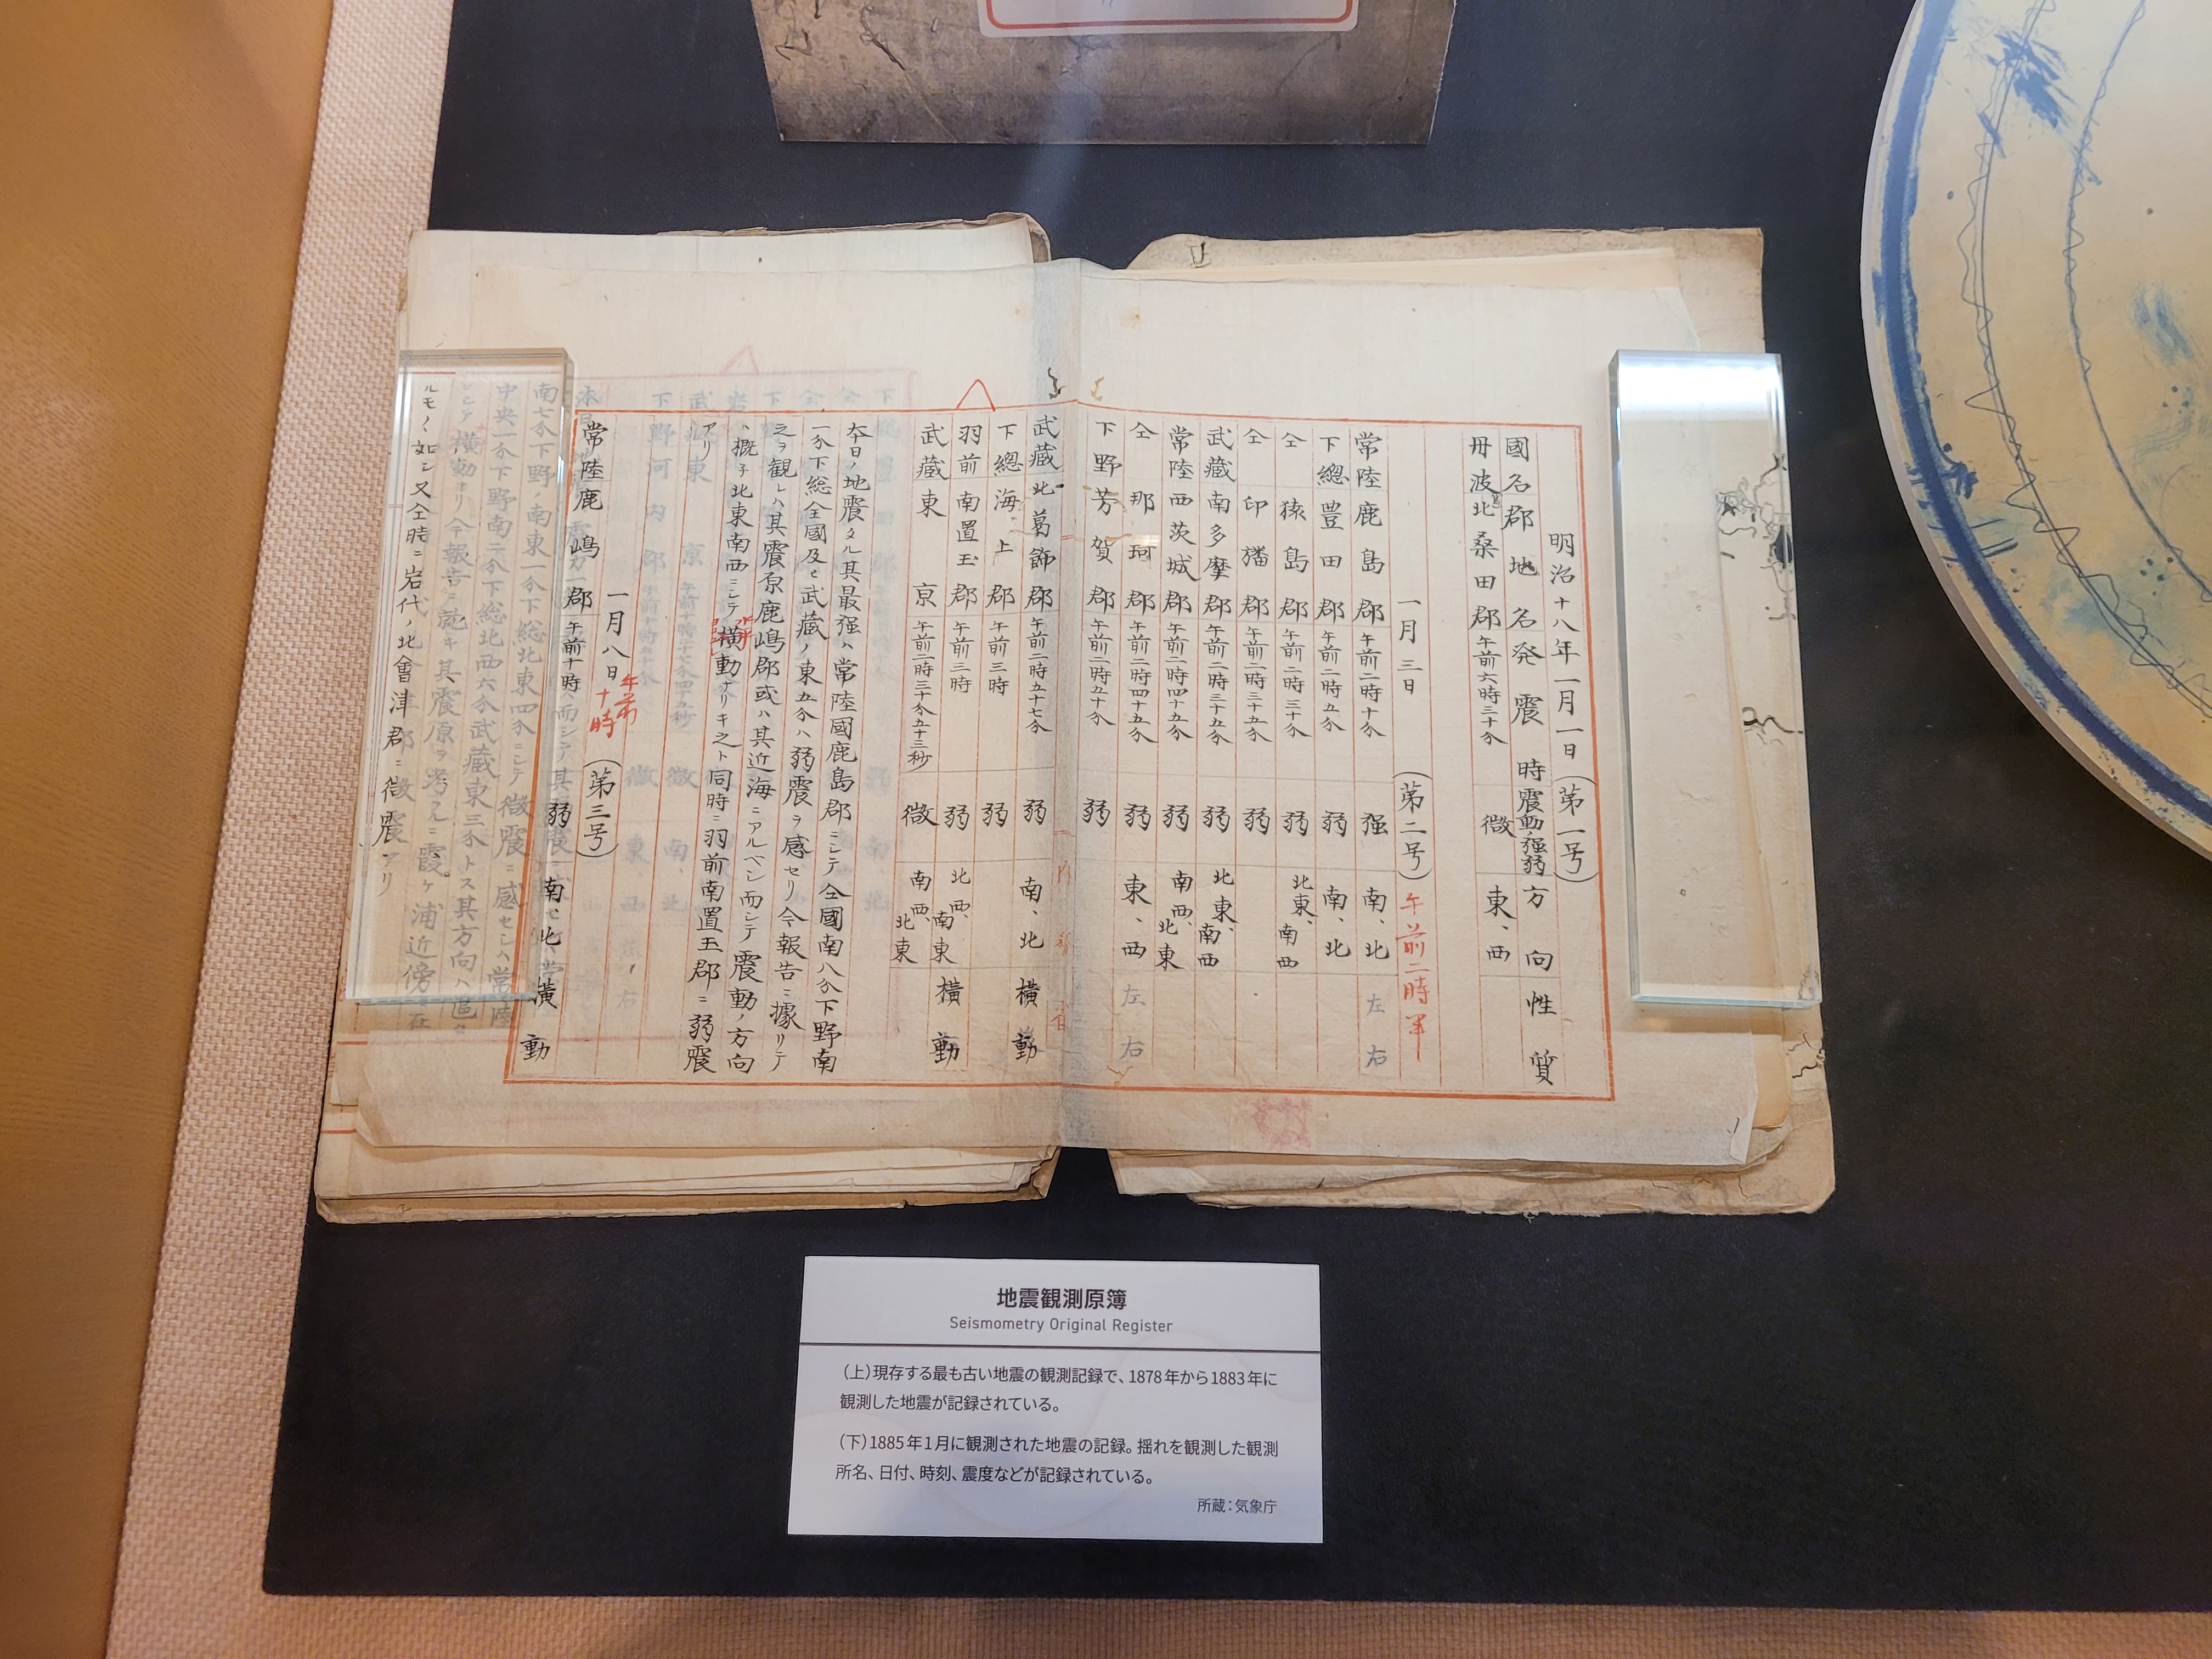 明治十八年一月一日(第一号)
國名郡地名発震時震動強弱方向性質
丹波北桑田郡午前六時三十分 微 東、西
一月三日 (第二号) 午前二時半
常陸鹿島郡午前二時十分 强 南、北 左右
下總豊田郡午前二時五分 弱 南、北
仝猿島郡午前二時三十分 弱 北東、南西
仝印旛郡午前二時三十五分 弱
武藏南多摩郡午前二時三十五分 弱 北東、南西
常陸西茨城郡午前二時四十五分 弱 南西、北東
仝那珂郡午前二時四十五分 弱 東、西 左右
下野芳賀郡午前二時五十分 弱
武藏北葛飾郡午前二時五十七分 弱 南、北 横動
下總海上郡午前三時 弱
羽前南置玉郡午前三時 弱 北西、南東 横動
武藏東京午前二時三十分五十三秒 微 南西、北東
本日ノ地震タル其最强ハ常陸國鹿島郡ニシテ仝國南八分下野南
一分下総全國及ヒ武藏ノ東五分ハ弱震ヲ感セリ今報告ニ據リテ
之ヲ観レハ其震原鹿嶋郡或ハ其近海ニアルヘシ而シテ震動ノ方向
ハ概子北東南西ニシテ横動ナリキ之ト同時ニ羽前南置玉郡ニ弱震
アリ
一月八日 午前十時 (第三号)
常陸鹿嶋郡午前十時 弱 南、北 横動
南七分下野ノ南東一分下総北東四分
中央一分下野南二分下総北西六分武藏東三分トス其方向ハ
横動ナリ今報告ニ就キ其震原ヲ考フルニ霞ヶ浦近傍ニ在
ルモノノ如シ又仝時ニ岩代ノ北會津郡ニ微震アリ
地震観測原簿
Seismometry Original Register
(上)現存する最も古い地震の観測記録で、1878年から1883年に
観測した地震が記録されている。
(下)1885年1月に観測された地震の記録。揺れを観測した観測
所名、日付、時刻、震度などが記録されている。
所蔵:気象庁